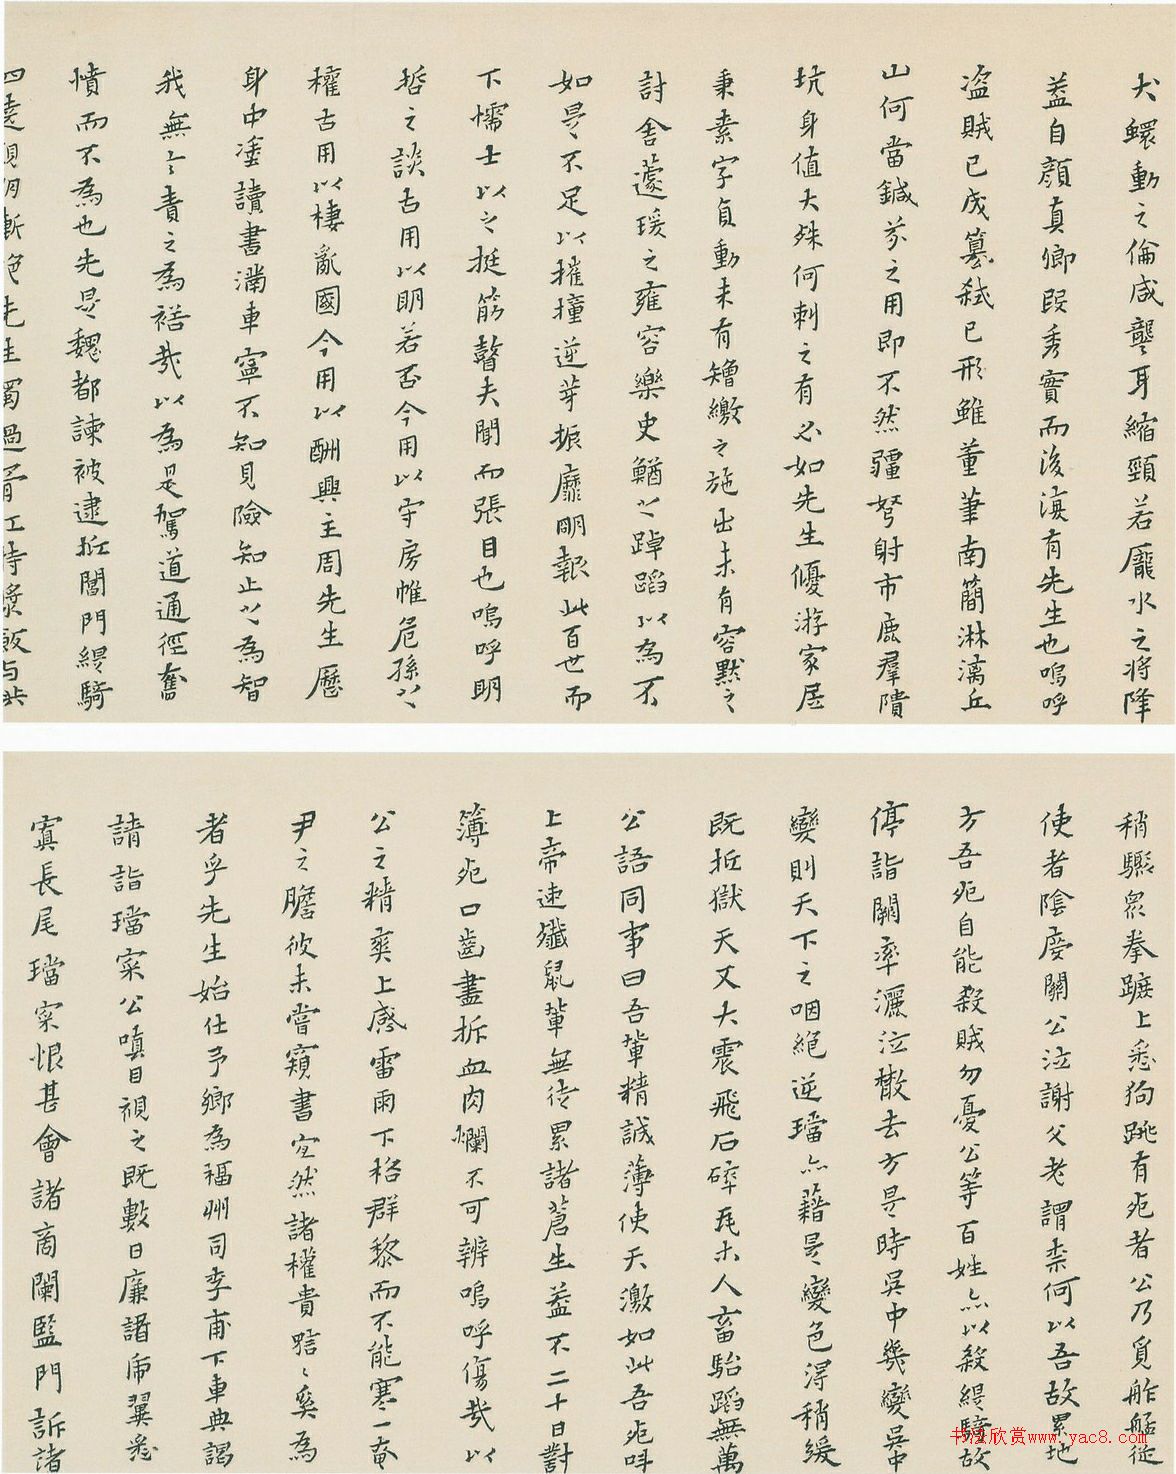 犬鰥動之倫咸聾耳縮頸若龎水之將降
蓋自顏真卿段秀實而後湨有先生也嗚呼
盜賊已成篡弑已形雖董筆南簡淋漓丘
山何當鍼芥之用即不然彊弩射市鹿羣隤
坑身值大殊何刺之有必如先生優游家居
秉素字貞動未有矰繳之施出未有容默之
討舍蘧瑗之雍容樂史鰌之踔蹈以為不
如是不足以摧撞逆芽振靡明報此百世而
下懦士以之挺筋瞽夫聞而張目也嗚呼明
哲之談古用以明若否今用以守房帷危孫以
權古用以棲亂國今用以酬興主周先生歷
身中埀讀書滿車寧不知見險知止以為智
我無言責之為褡哉以為是駕道通徑奮
憤而不為也先是魏都諫被逮抵閶門緹騎
四遶親朋斬絶先生獨過胥江持漿飯与共
稍驅眾拳踱上悉狗跳有死者公乃覓舴艋從
使者陰慶關公泣謝父老謂柰何以吾故累地
方吾死自能殺賊勿憂公等百姓亦以殺緹騎故
停詣闕率灑泣散去方是時吳中幾變吳中
變則天下之咽絕逆璫亦藉是變色淂稍緩
既抵獄天又大震飛石碎瓦木人畜駘蹈無萬
公語同事曰吾輩精誠薄使天激如此吾死叫
上帝速殲鼠輩無徒累諸蒼生蓋不二十日對
簿死口齒盡拆血肉爛不可辨嗚呼傷哉以
公之精爽上感雷雨下格群黎而不能寒一奄
尹之膽彼未嘗窺書宜然諸權貴喑〻奚為
者乎先生始仕予鄉為福州司李甫下車典謁
請詣璫寀公嗔目視之既數日廉諸帍翼悉
寘長尾璫寀恨甚會諸商闌監門訴諸
书法欣赏www.yac8.com